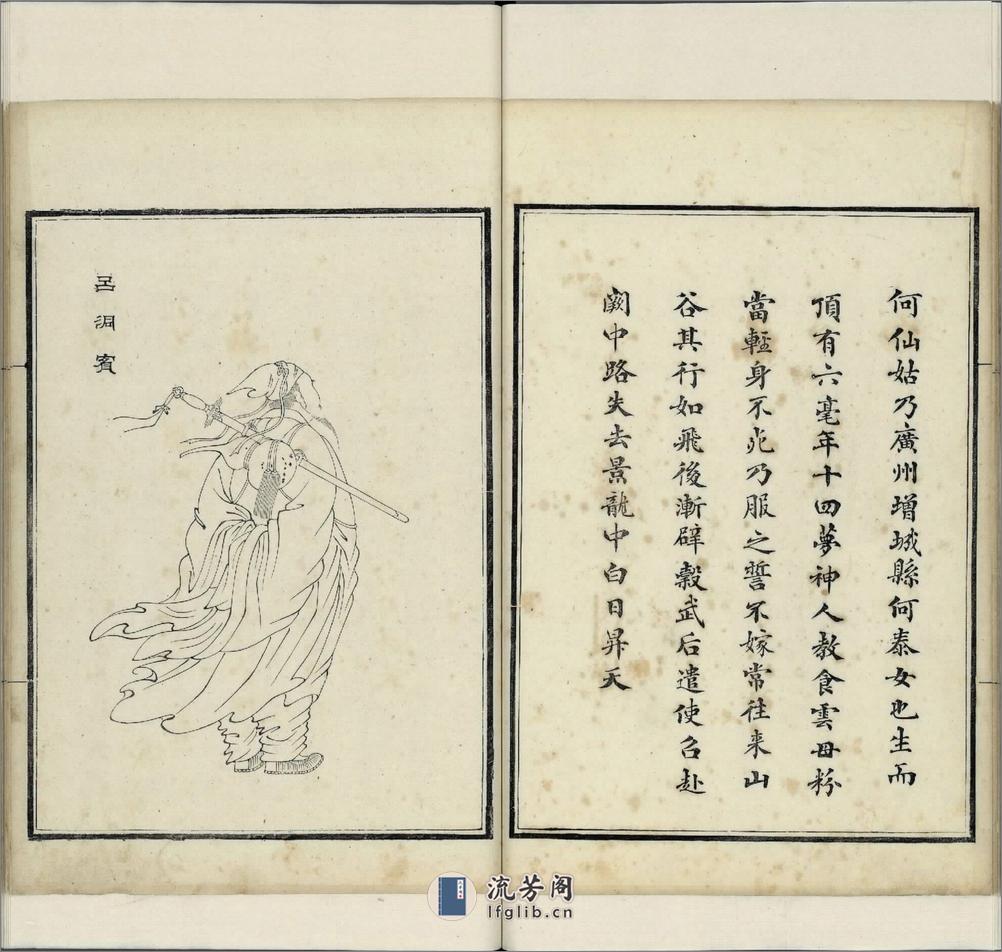 何仙姑乃廣州增城縣何泰女也生而
頂有六毫年十四夢神人教食雲母粉
當輕身不死乃服之誓不嫁常往来山
谷其行如飛後漸辟穀武后遣使召赴
闕中路失去景龍中白日昇天
呂洞賓
流芳阁
lfglib.cn